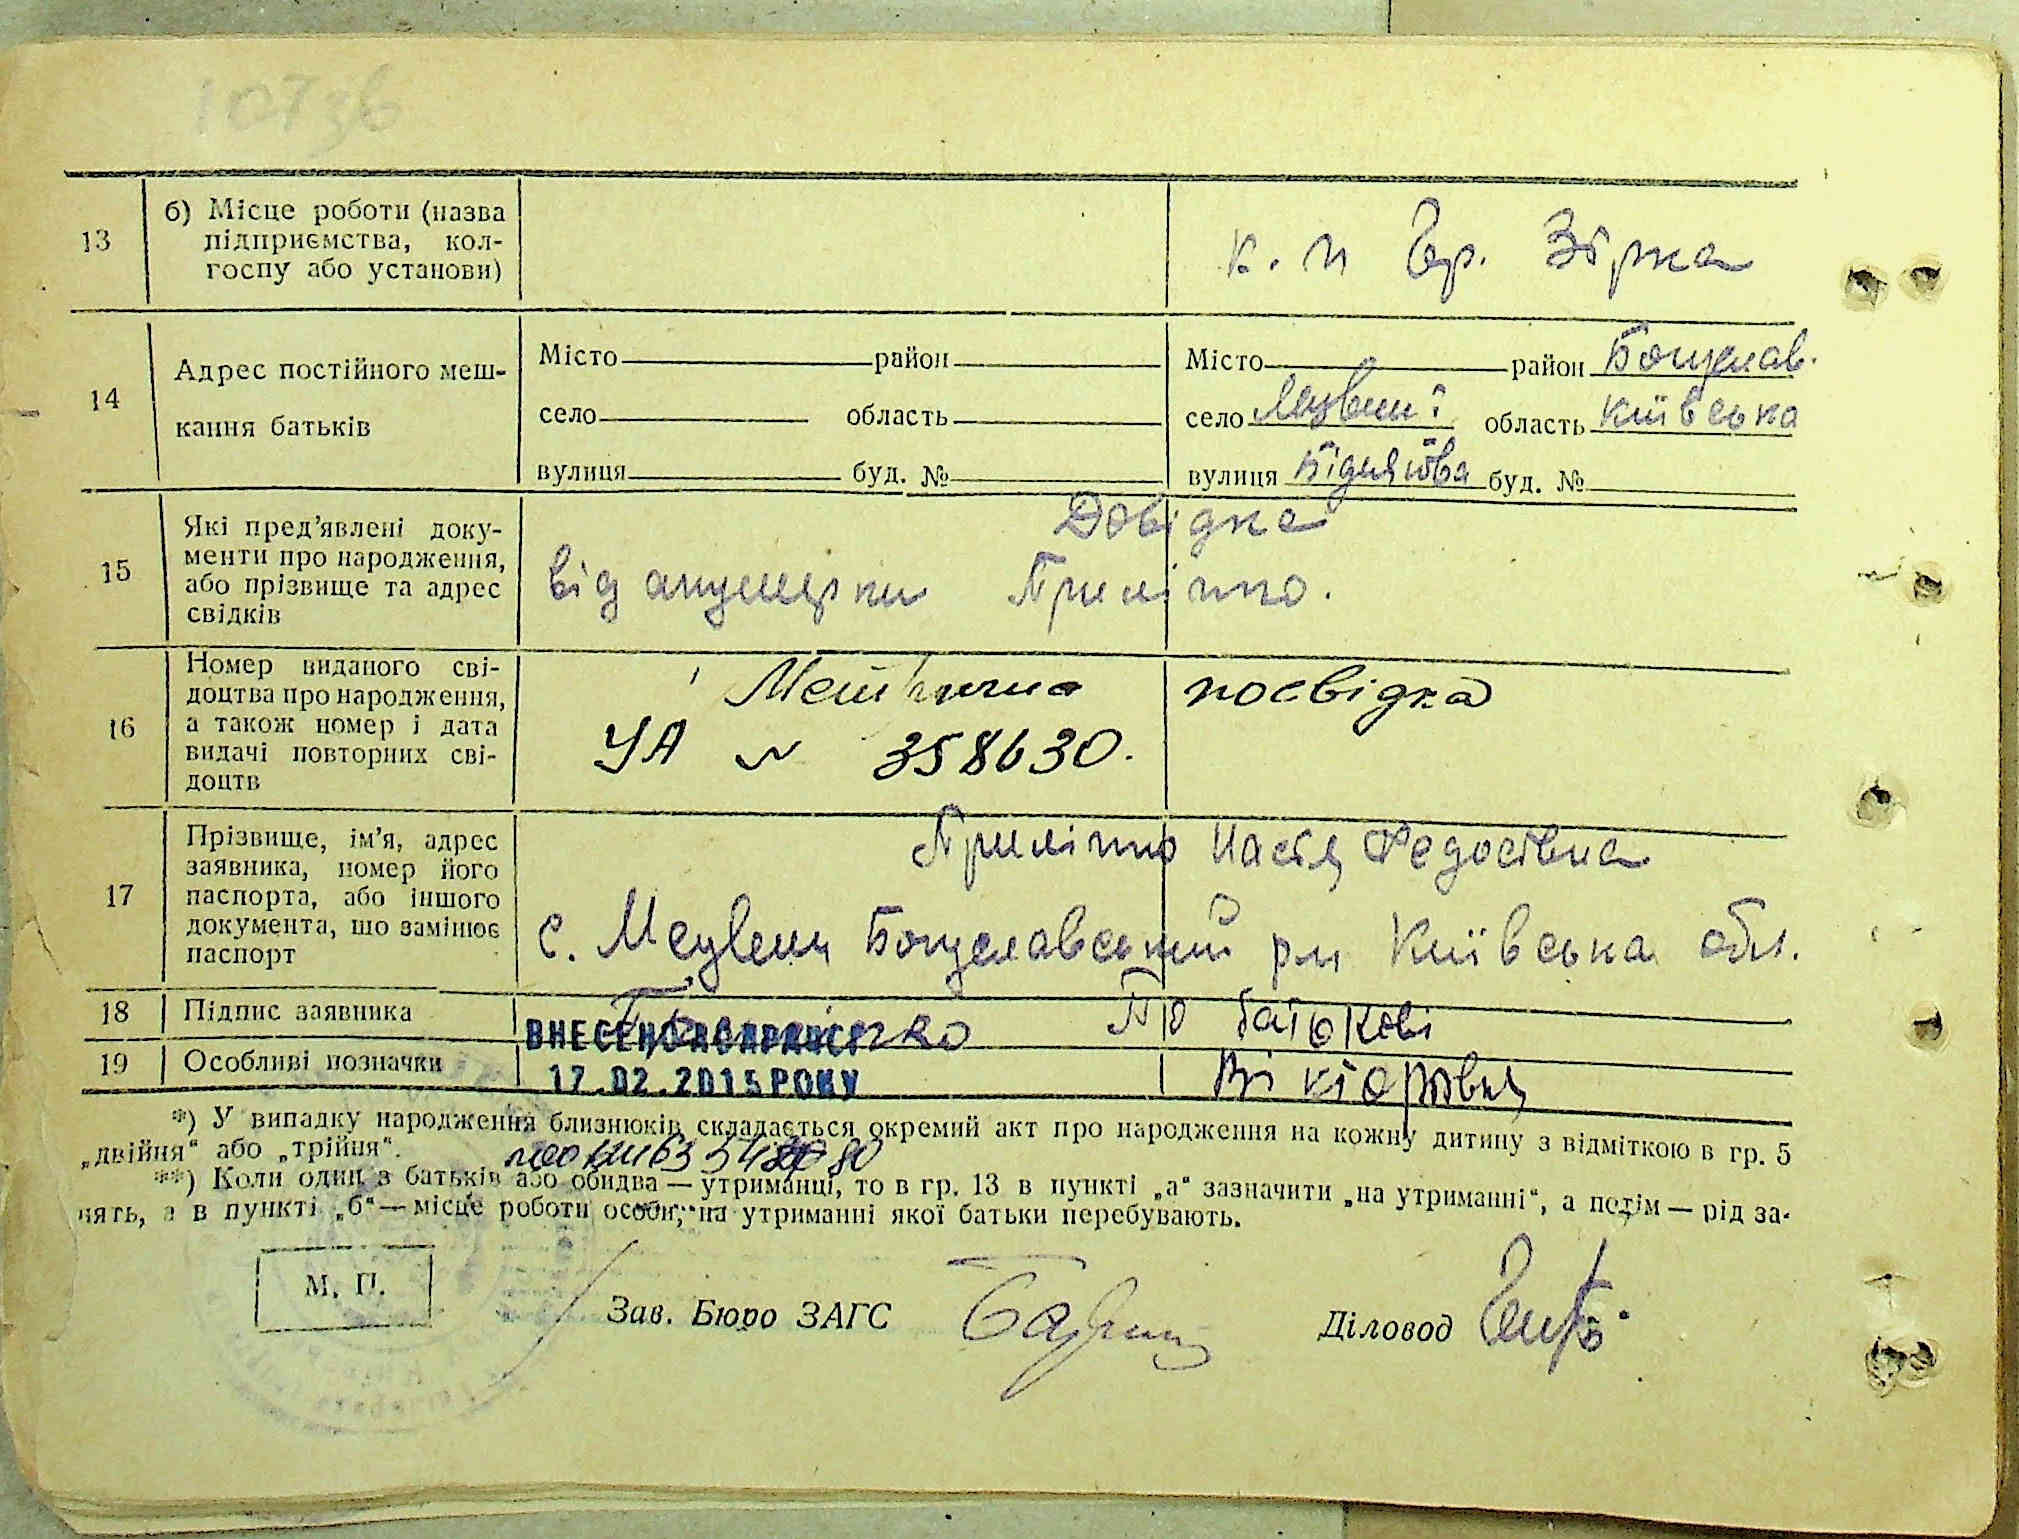 107зв
13
б) Місце роботи (назва
підприємства, кол-
госпу або установи)
к. п Чер. Зірка
14
Адрес постійного меш-
кання батьків
Місто район
село область
вулиця буд. №
Місто район Богуслав.
село область Київська
вулиця буд. №
15
Які пред’явлені доку-
менти про народження,
або прізвище та адрес
свідків
Довідка
від акушерки Приліпко.
16
Номер виданого сві-
доцтва про народження,
а також номер і дата
видачі повторних сві-
доцтв
Метрична посвідка
УА № 358630.
17
Прізвище, ім’я, адрес
заявника, номер його
паспорта, або іншого
документа, що замінює
паспорт
Приліпко Настя Федосівна
с. Медвин Богуславський р-н Київська обл.
18
Підпис заявника
По батькові
19
Особливі позначки
ВНЕСЕНО ДО ДРАЦСГ
17.02.2015 РОКУ
Вікторівна
*) У випадку народження близнюків складається окремий акт про народження на кожну дитину з відміткою в гр. 5
„двійня“ або „трійня“.
**) Коли один з батьків або обидва — утриманці, то в гр. 13 в пункті „а“ зазначити „на утриманні“, а потім — рід за-
нять, а в пункті „б“ — місце роботи особи, на утриманні якої батьки перебувають.
М. П.
Зав. Бюро ЗАГС
Діловод